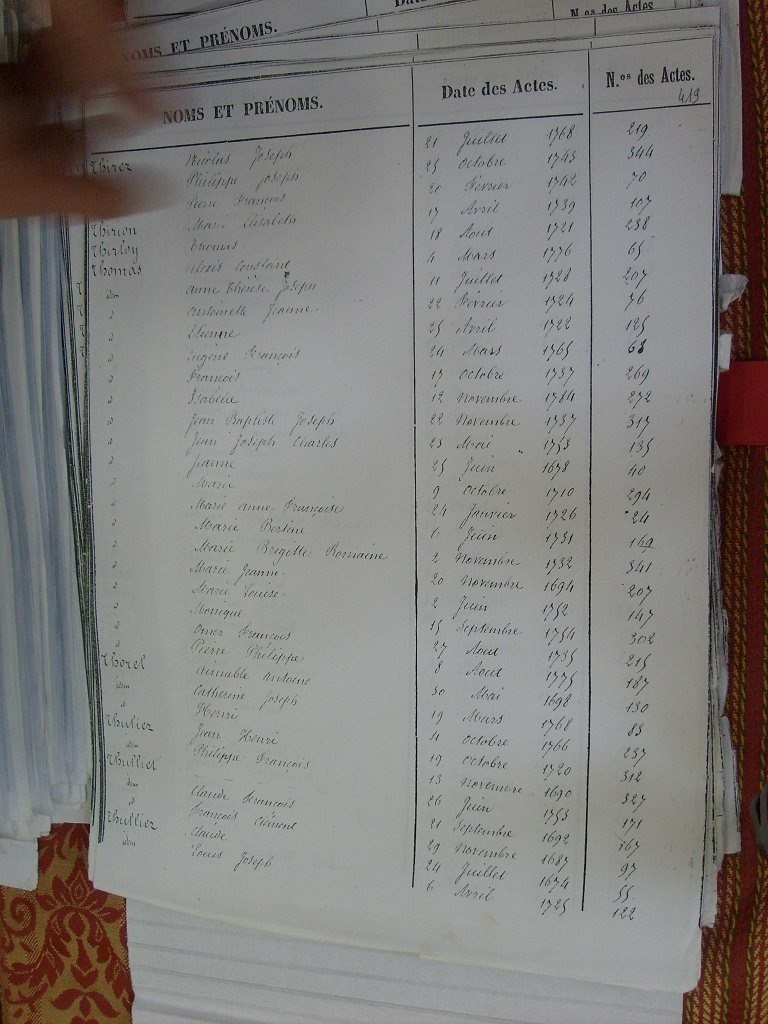 Date
N.os des Actes
NOMS ET PRÉNOMS.
NOMS ET PRÉNOMS. Date des Actes. N.os des Actes.
419
Thirez Nicolas Joseph 21 Juillet 1768 219
Philippe Joseph 25 Octobre 1743 344
Pierre François 20 Fevrier 1742 70
Thirion Marie Elisabeth 17 Avril 1739 107
Thirloy Thomas 18 Aout 1721 238
Thomas Alexis Constant 4 Mars 1776 65
idem Anne Thérèse Joseph 11 Juillet 1728 207
d Antoinette Jeanne 22 Fevrier 1724 76
d Etienne 25 Avril 1722 125
d Eugène François 24 Mars 1765 68
d François 17 Octobre 1737 269
d Isabelle 12 Novembre 1784 272
d Jean Baptiste Joseph 22 Novembre 1737 317
d Jean Joseph Charles 23 Mai 1753 135
d Jeanne 25 Juin 1678 40
d Marie 9 Octobre 1710 294
d Marie Anne Françoise 24 Janvier 1726 24
d Marie Bertine 6 Juin 1731 169
d Marie Brigitte Romaine 2 Novembre 1732 341
d Marie Jeanne 20 Novembre 1694 207
d Marie Louise 2 Juin 1752 147
d Monique 15 Septembre 1754 302
d Omer François 27 Aout 1735 215
d Pierre Philippe 8 Aout 1775 187
Thorel Aimable Antoine 30 Mai 1698 130
idem Catherine Joseph 19 Mars 1768 83
d Henri 4 Octobre 1766 237
Thuliez Jean Henri 19 Octobre 1720 312
idem Philippe François 13 Novembre 1690 327
Thulliet 26 Juin 1753 171
idem Claude François 21 Septembre 1692 167
d François Clément 29 Novembre 1687 97
Thulliez Claude 24 Juillet 1674 55
idem Louis Joseph 6 Avril 1725 122